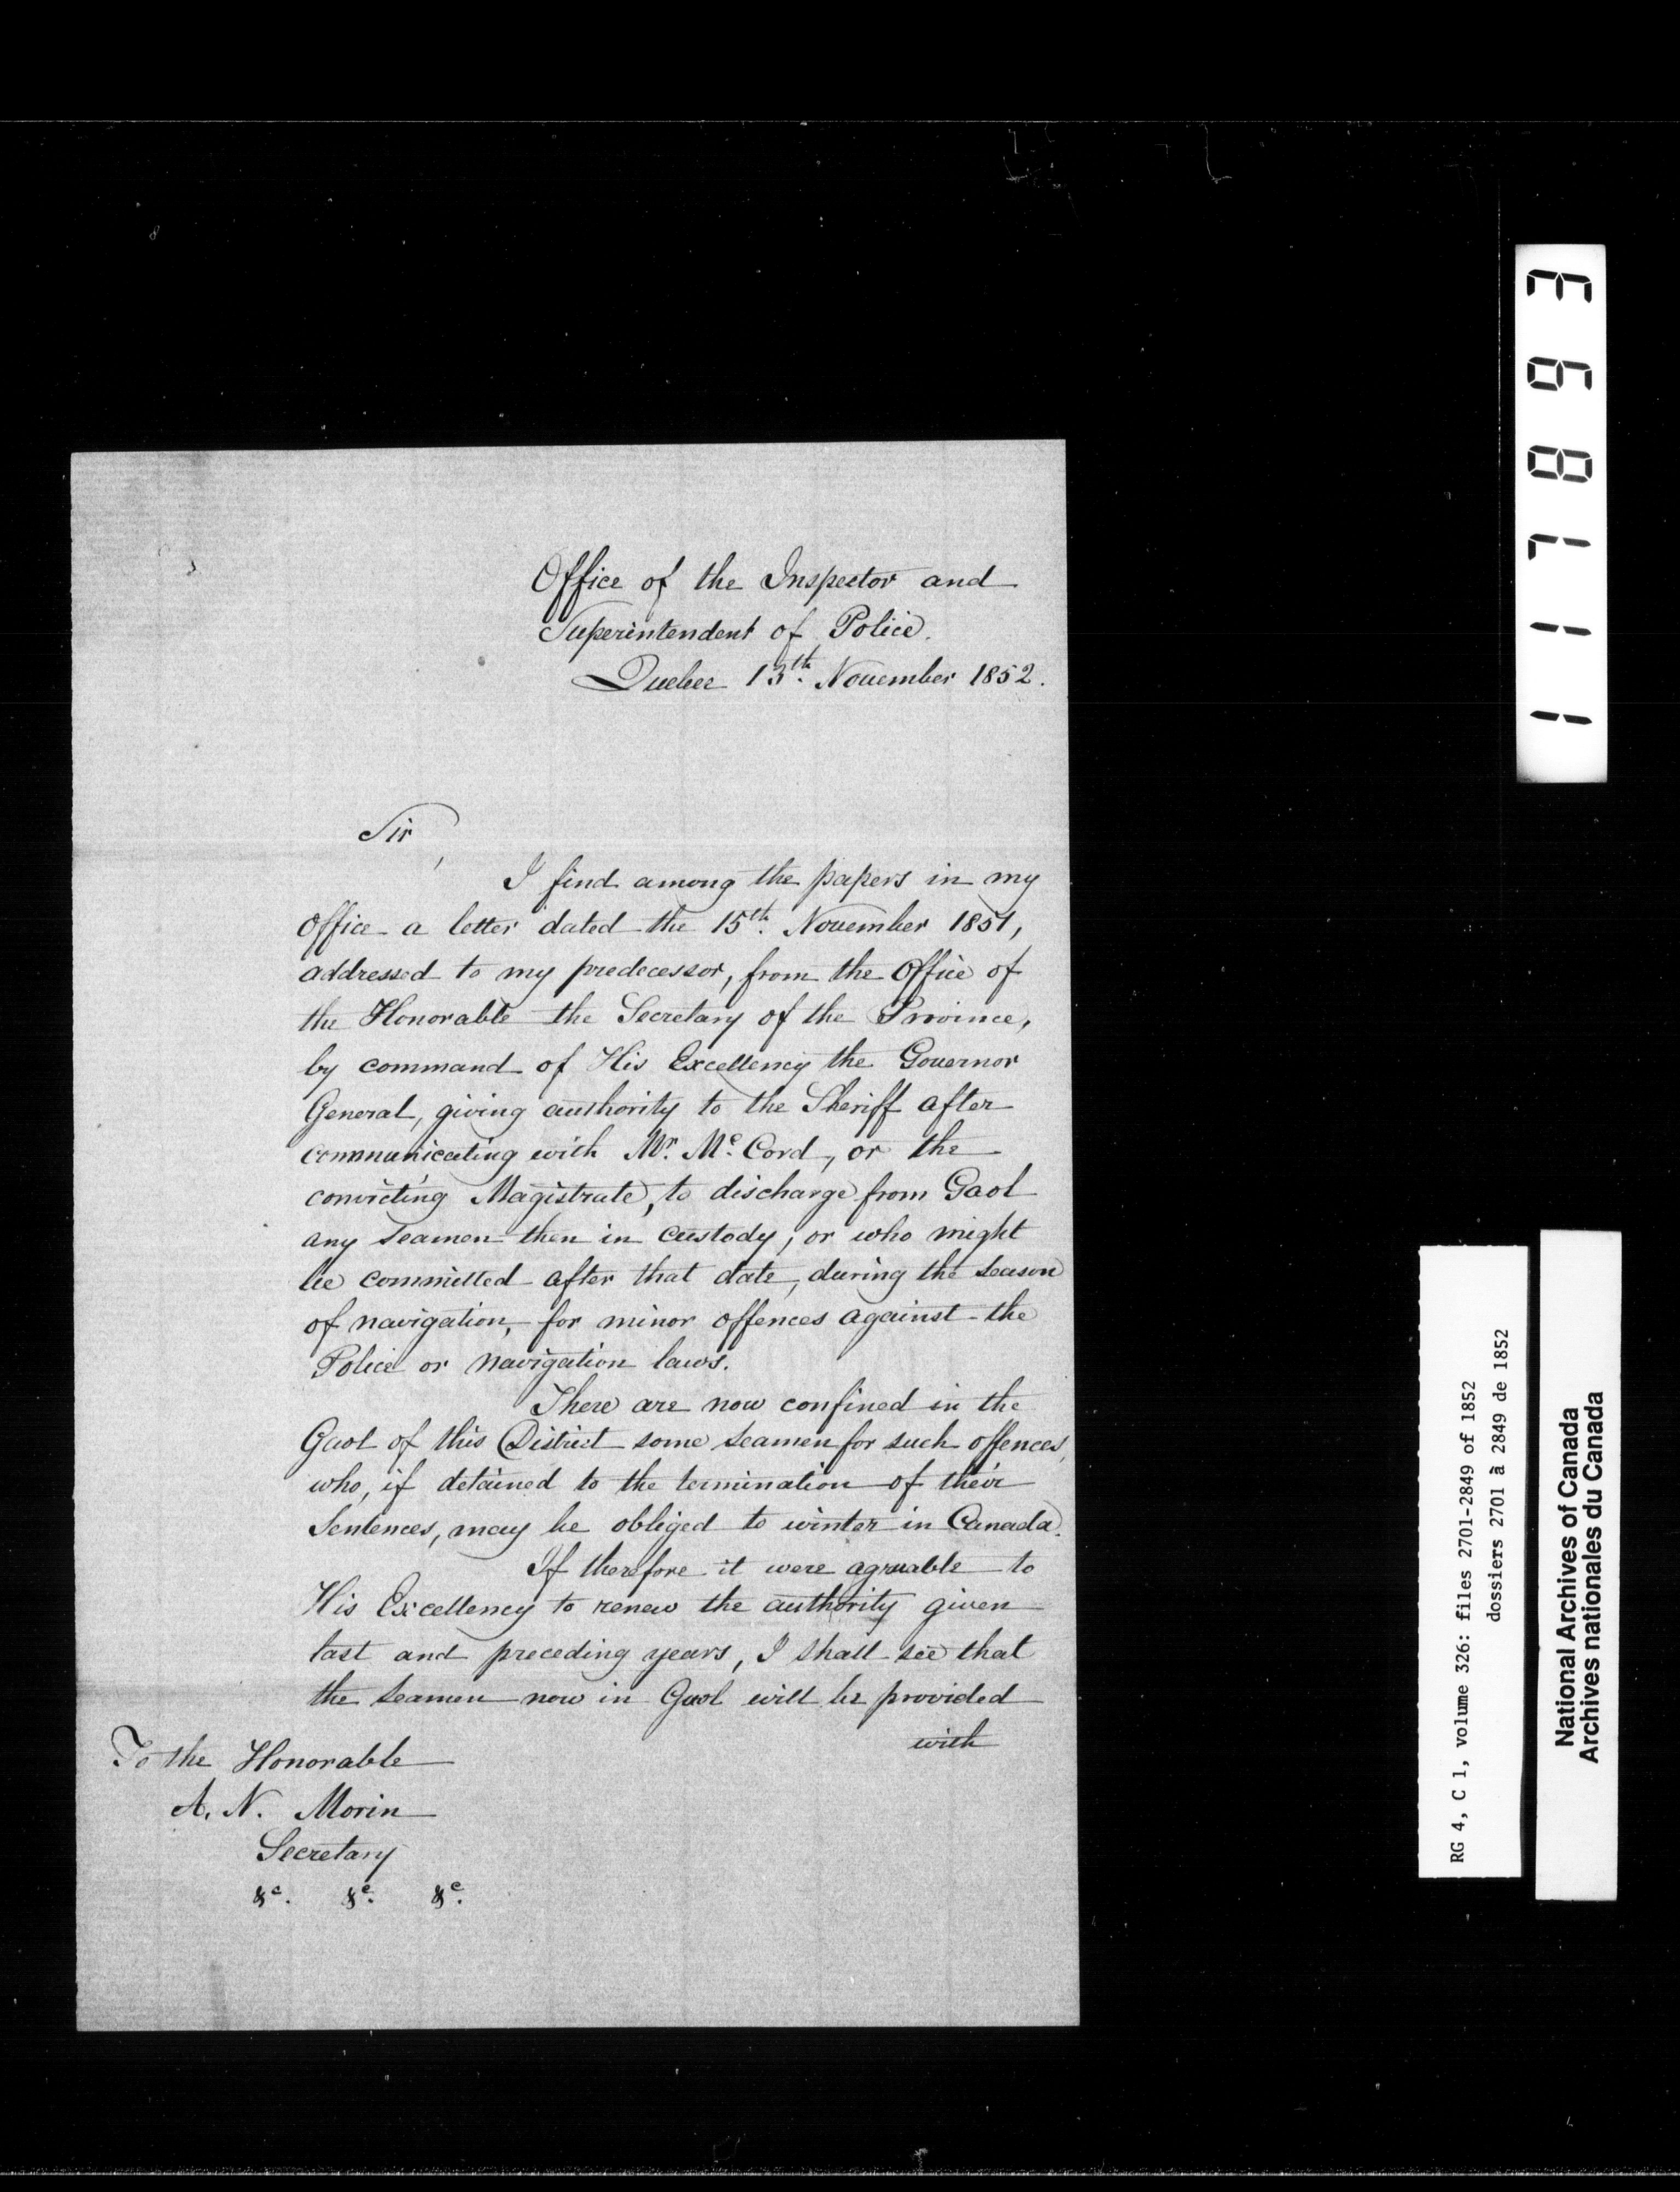 Office of the Inspector and
Superintendent of Police.
Quebec 13th. November 1852.
Sir,
I find among the papers in my
Office a letter dated the 15th. November 1851,
addressed to my predecessor, from the Office of
the Honorable the Secretary of the Province,
by command of His Excellency the Governor
General, giving authority to the Sheriff after
communicating with Mr. Mc. Cord, or the
convicting Magistrate, to discharge from Gaol
any Seamen then in custody, or who might
be committed after that date, during the season
of navigation, for minor offences against the
Police or navigation laws.
There are now confined in the
Gaol of this District some Seamen for such offences,
who, if detained to the termination of their
Sentences, may be obliged to winter in Canada.
If therefore it were agreeable to
His Excellency to renew the authority given
last and preceding years, I shall see that
the Seamen now in Gaol will be provided
with
To the Honorable
A. N. Morin
Secretary
&c. &c. &c.
111789 3
RG 4, C 1, volume 326: files 2701-2849 of 1852
dossiers 2701 à 2849 de 1852
National Archives of Canada
Archives nationales du Canada